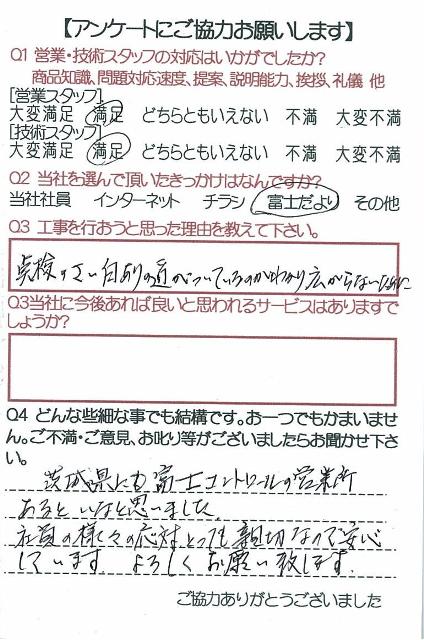 【アンケートにご協力お願いします】
Q1 営業・技術スタッフの対応はいかがでしたか?
商品知識、問題対応速度、提案、説明能力、挨拶、礼儀 他
[営業スタッフ]
大変満足 満足 どちらともいえない 不満 大変不満
[技術スタッフ]
大変満足 満足 どちらともいえない 不満 大変不満
Q2 当社を選んで頂いたきっかけはなんですか?
当社社員 インターネット チラシ 富士だより その他
Q3 工事を行おうと思った理由を教えて下さい。
点検のさい白ありの道がついているのがわかり広がらないために
Q3当社に今後あれば良いと思われるサービスはありますで
しょうか?
Q4 どんな些細な事でも結構です。お一つでもかまいませ
ん。ご不満・ご意見、お叱り等がございましたらお聞かせ下さ
い。
茨城県にも富士コントロールの営業所
あるといなと思いました
社員の様々の応対とっても親切なので安心
しています。よろしくお願い致します。
ご協力ありがとうございました